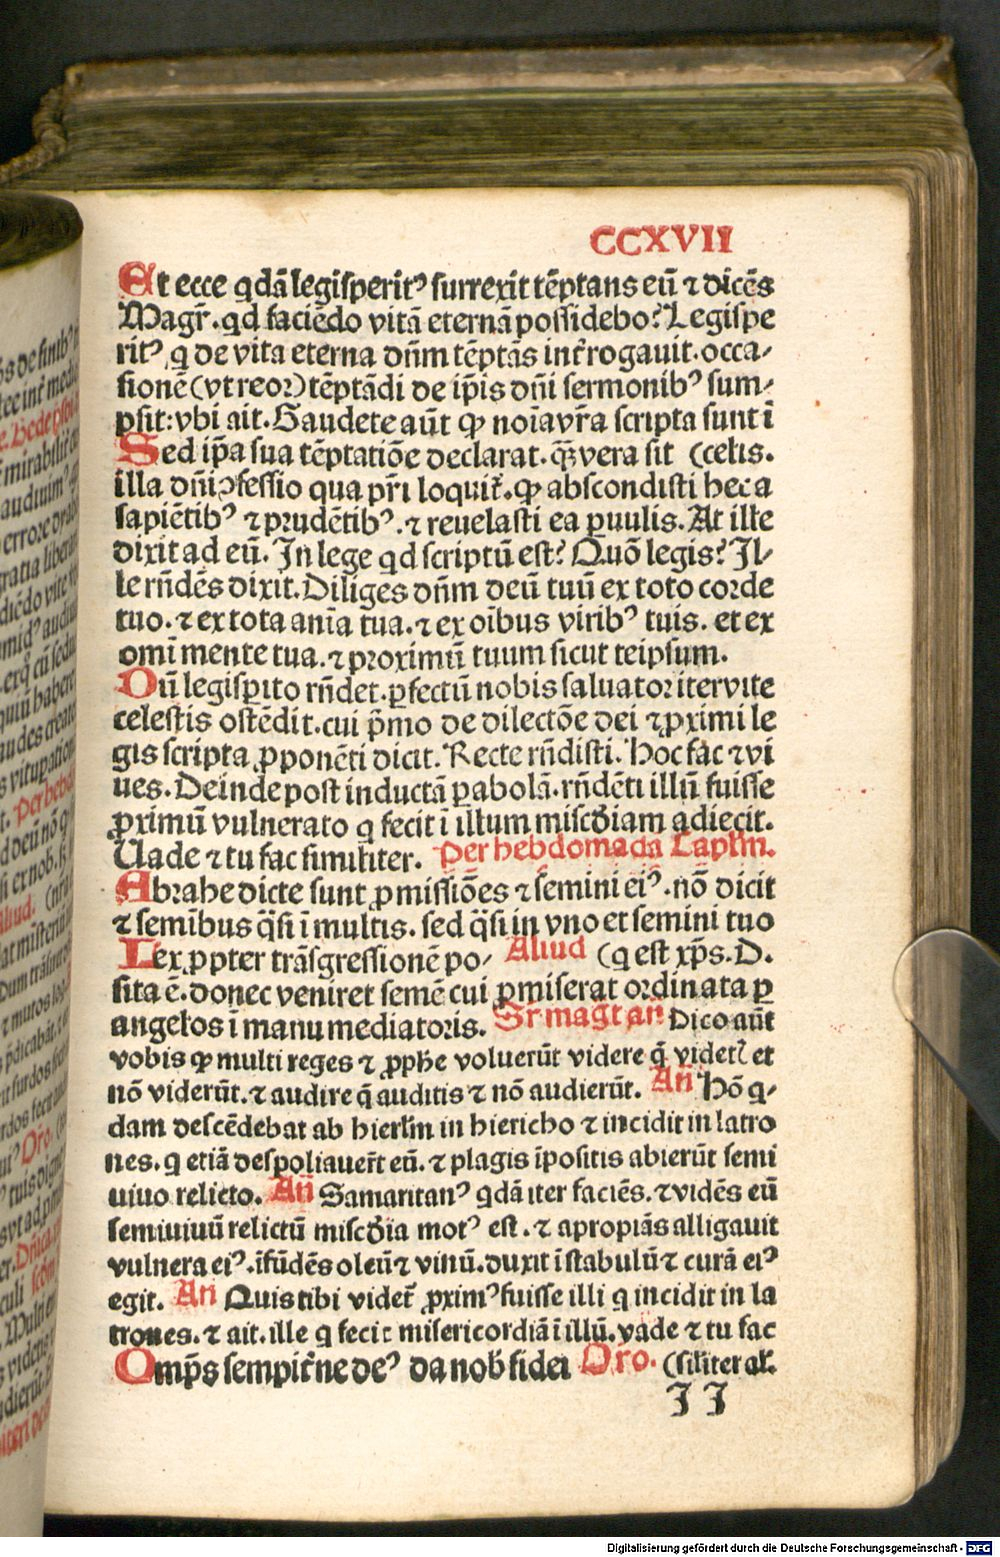 CCXVII
Et ecce qdā legisperitꝰ surrexit tēptans eū ⁊ dicēs
Magr̄. qd faciēdo vitā eternā possidebo? Legispe
ritꝰ q̇ de vita eterna dn̄m tēptās int̄rogauit. occa⸗
sionē (vt reor) tēptādi de ip̄is dn̄i sermonibꝰ sum⸗
psit: vbi ait. Gaudete aūt ꝙ noīa vr̄a scripta sunt ī
Sed ip̄a sua tēptatiōe declarat. q̄ꝫ vera sit (celis.
illa dn̄i ꝯfessio qua pr̄i loquit̄. ꝙ abscondisti hec a
sapiētibꝰ ⁊ prudētibꝰ. ⁊ reuelasti ea ꝑuulis. At ille
dixit ad eū. In lege qd scriptū est? Quō legis? Il⸗
le rn̄dēs dixit. Diliges dn̄m deū tuū ex toto corde
tuo. ⁊ ex tota anīa tua. ⁊ ex oībus viribꝰ tuis. et ex
omī mente tua. ⁊ proximū tuum sicut teipsum.
Dū legisꝑito rn̄det. ꝑfectū nobis saluator iter vite
celestis ostēdit. cui p̄mo de dilectōe dei ⁊ ꝓximi le
gis scripta ꝓponēti dicit. Recte rn̄disti. Hoc fac ⁊ vi
ues. Deinde post inductā ꝑabolā. rn̄dēti illū fuisse
ꝓximū vulnerato q̇ fecit ī illum misc̄diam adiecit.
Uade ⁊ tu fac similiter. Per hebdomadā Caplm̄.
Abrahe dicte sunt ꝓmissiōes ⁊ semini eiꝰ. nō dicit
⁊ semībus q̄si ī multis. sed q̄si in vno et semini tuo
Lex ꝓpter trāsgressionē po⸗ Aliud (q̇ est xp̄s. D.
sita ē. donec veniret semē cui ꝓmiserat ordinata ꝑ
angelos ī manu mediatoris. Sr̄ magt̄ an̄ Dico aūt
vobis ꝙ multi reges ⁊ ꝓphe voluerūt videre q̄ videt̄ et
nō viderūt. ⁊ audire q̄ auditis ⁊ nō audierūt. An̄ Hō q⸗
dam descēdebat ab hierlm̄ in hiericho ⁊ incidit in latro
nes. q̇ etiā despoliauer̄t eū. ⁊ plagis īpositis abierūt semi
uiuo relicto. An̄ Samaritanꝰ qdā iter faciēs. ⁊ vidēs eū
semiuiuū relictū misc̄dia motꝰ est. ⁊ apropiās alligauit
vulnera eiꝰ. īfūdēs oleū ⁊ vinū. duxit ī stabulū ⁊ curā eiꝰ
egit. An̄ Quis tibi videt̄ ꝓximꝰ fuisse illi q̇ incidit in la
trones. ⁊ ait. ille q̇ fecit misericordiā ī illū. vade ⁊ tu fac
Omp̄s sempit̄ne deꝰ da nob̄ fidei Oro. (siliter al̄.
I I
Digitalisierung gefördert durch die Deutsche Forschungsgemeinschaft - DFG